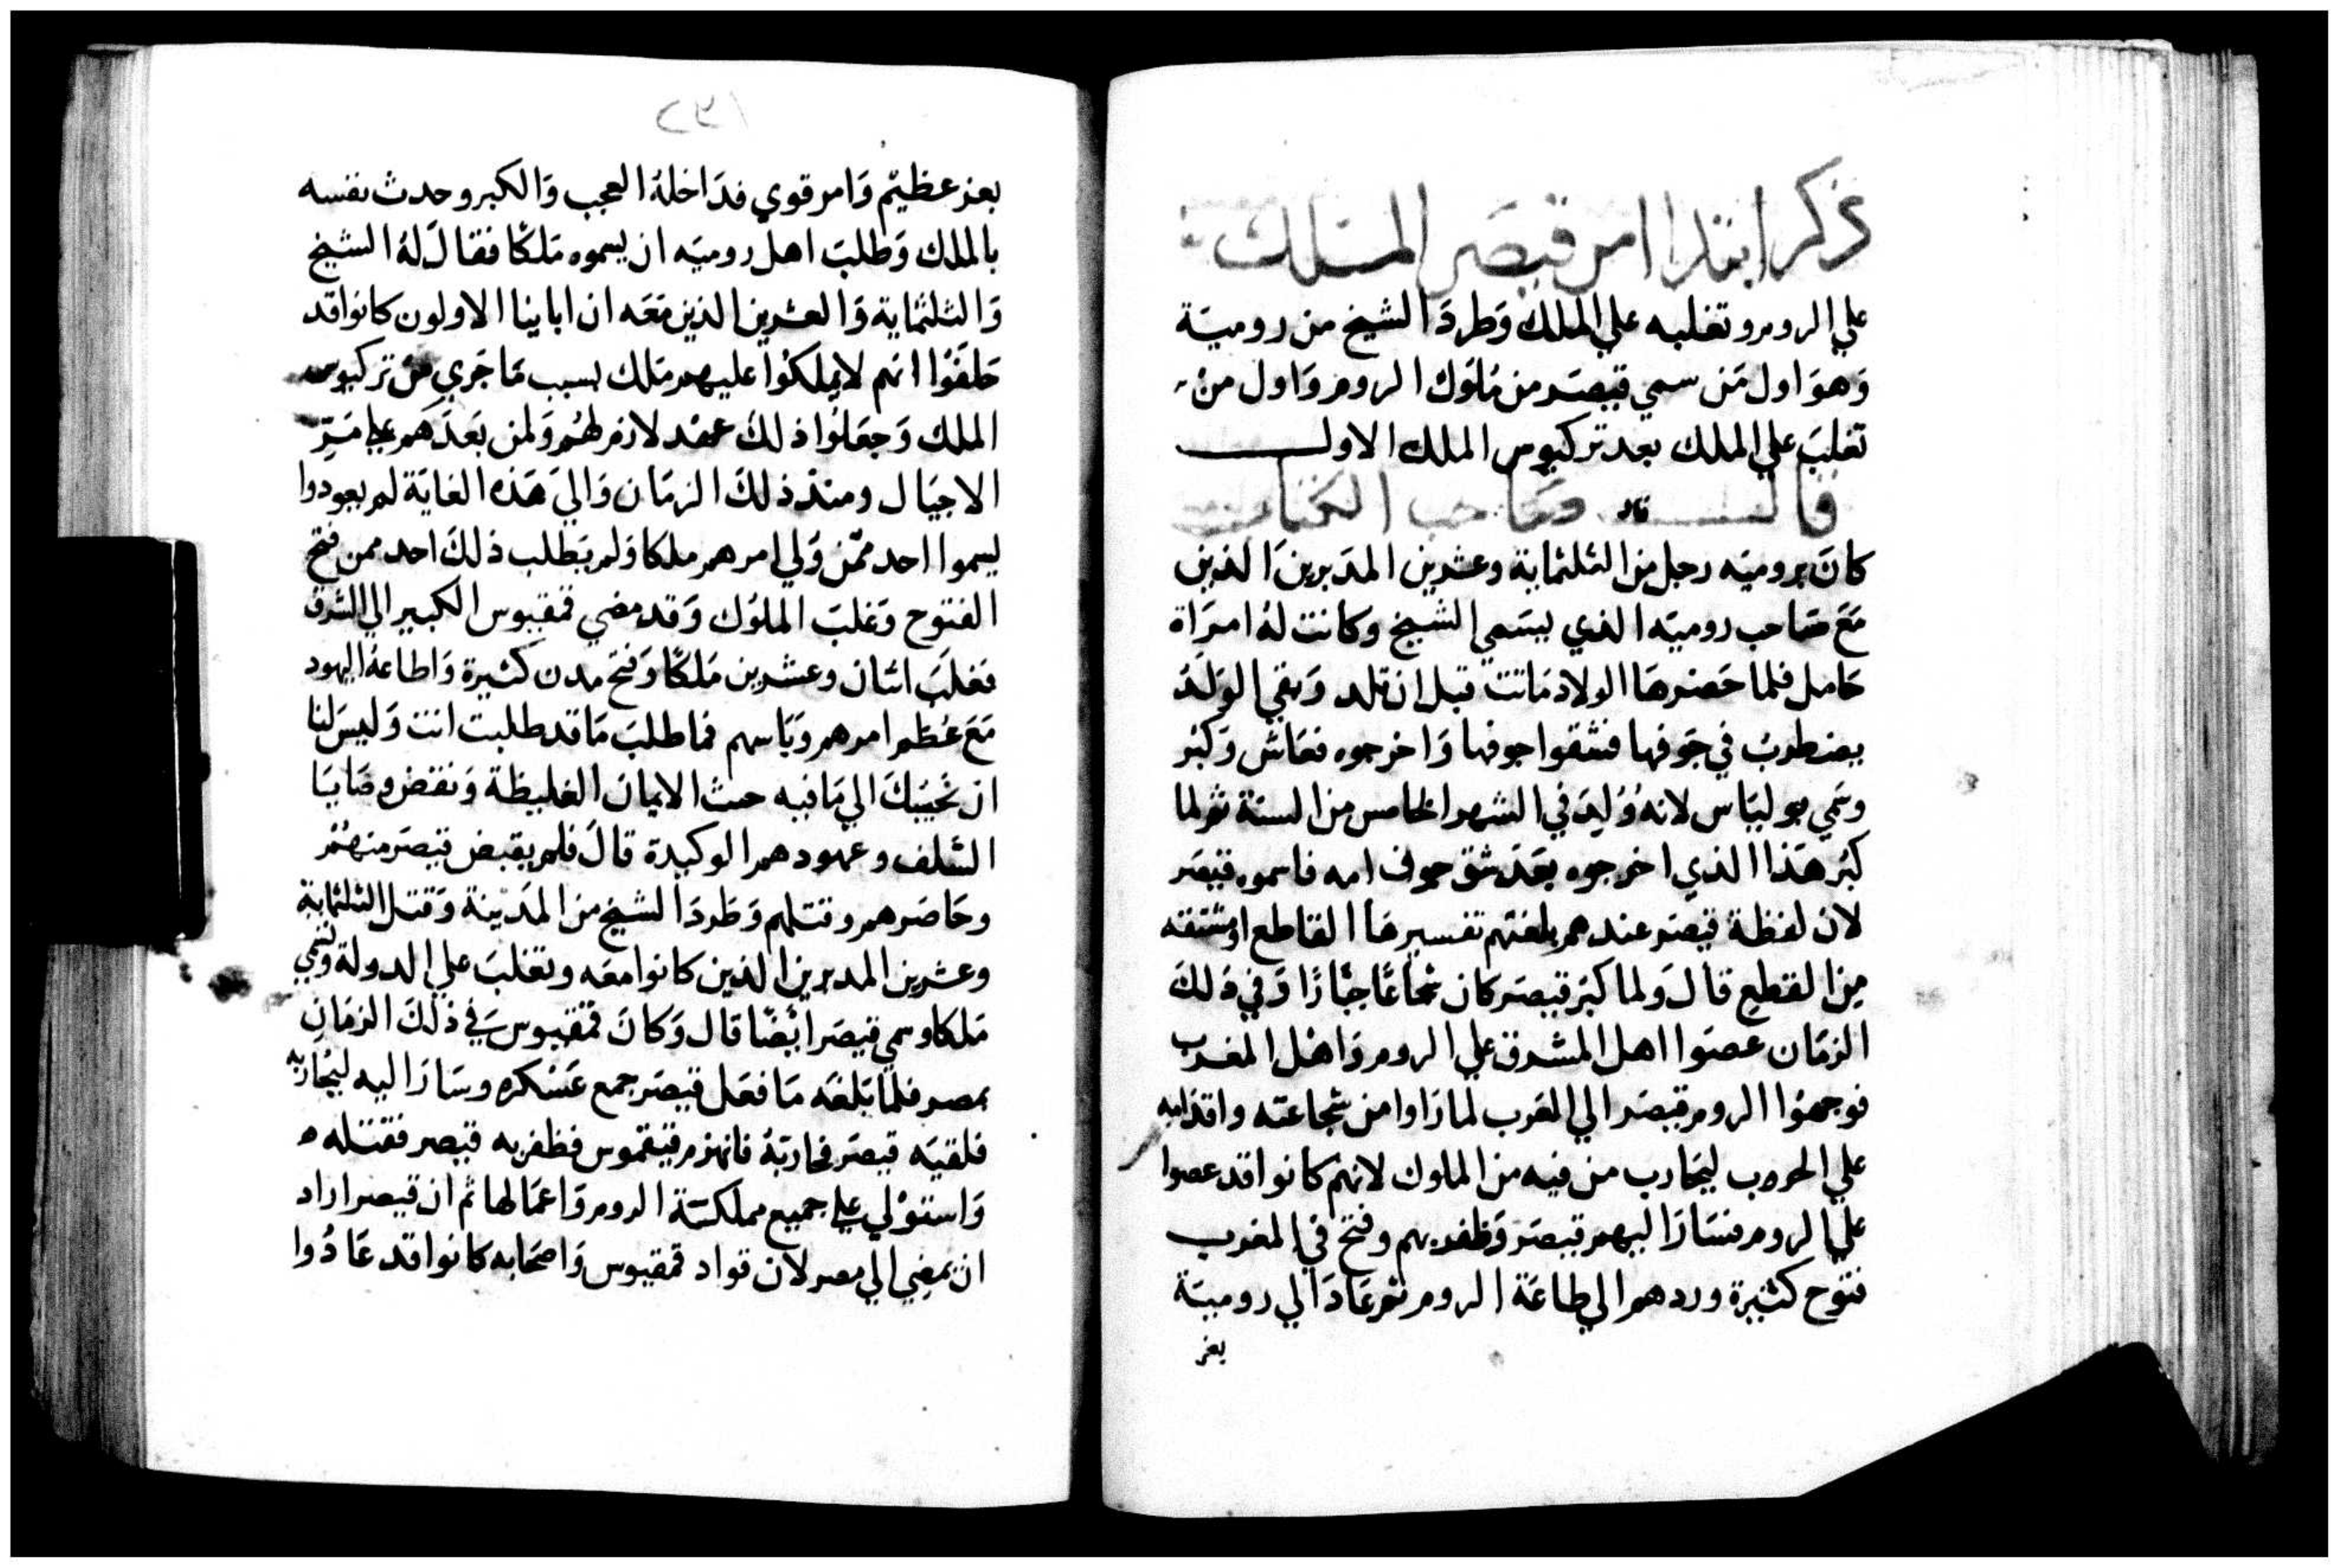 ذكر ابتدا امر قيصر المتملك
علي الروم وتغلبه علي الملك وَطردَ الشيخ من روميَة
وَهوَ اول مَن سمي قيصَر من مُلوك الروم وَاول من
تغلبَ علي الملك بعد تركيوس الملك الاول
قال صَاحب الكتاب
كانَ بروميَه رجل من الثلثماية وعشرين المدَبرينَ الذين
مَعَ صَاحب روميَه الذي يسَمي الشيخ وكانت لهُ امرَاة
حَامل فلما حَضرهَا الولاد مَاتت قبل ان تلد وَبقي الوَلَدُ
يضطربُ في جَوفها فشقوا جوفها وَاخرجوه فعَاشَ وَكبُر
وسَمي يوليَاس لانهُ وُلِدَ في الشهر الخامس من السنة ثم لما
كبُر هَذا الذي اخرجوه بعَدَ شق جوف امه فاسموه قيصَر
لان لفظة قيصَر عندهم بلغتهم تفسيرهَا القاطع او مشتقه
مِن القطعِ قالَ وَلما كبُر قيصَر كان شجاعًا جبَّارًا وَفي ذَلكَ
الزمَان عصَوا اهل المشرق علي الروم وَاهْل المغرب
فوجهوُا الروم قيصَر الي الغَرب لما رَاوا من شجاعته واقدامه
علي الحروب ليحَارب من فيه من الملوك لانهم كانوا قد عصوا
علي الروم فسَارَ اليهم قيصَر وَظفر بهم وفتح في المغرب
فتوُح كثيرة وردهم الي طاعَة الروم ثم عَادَ الي روميَة
بعز
٢٣١
بعز عظيْم وَامر قوي فدَاخلهُ العجب وَالكبر وحدث نفسه
بالملك وَطلبَ اهل روميَه ان يسموه مَلكًا فقالَ لهُ الشيخ
وَالثلثماية وَالعشرين الذين مَعَه ان ابايِنا الاولون كانوا قد
حَلفوُا انهم لا يملكوُا عليهم مَلك بسبب مَا جَري من تركيوس
الملك وَجعَلوُا ذلكَ عهْد لازم لهُم وَلمن بَعدَهم علي مَرِّ
الاجيَال ومنذ ذلكَ الزمَان وَاليَ هَذه الغايَة لم يعودوا
يسموا احد ممّن وَلي امرهم ملكا وَلم يَطلب ذلكَ احد ممن فتح
الفتوح وَغلبَ الملوُك وَقد مضي قمقيوس الكبير الي الشرق
فغلبَ اثنان وعشرين مَلكًا وَفتح مدن كثيرة وَاطاعهُ اليهود
مَعَ عُظم امرهم وَبَاسهم فما طلبَ مَا قد طلبت انت وَليسَ لنا
ان نُجيبَكَ الي مَا فيه حنث الايمان الغليظة وَنقض وصَايَا
السَلف وعهودهم الوكيدة قالَ فلم يقبض قيصَر منهُم
وحَاصَرهم وقتلهم وَطَردَ الشيخ من المَديْنة وَقتل الثلثماية
وعشرين المدبرين الذين كانوا معَه وتغلبَ علي الدولة وَسُمي
مَلكا وسمي قيصَر ايْضًا قال وَكانَ قمقيوس في ذلَكَ الزمَان
بمصر فلما بَلغَه مَا فعَل قيصَر جمع عَسْكره وسَارَ اليه ليُحَاربه
فلقيَه قيصَر فحَاربَهُ فانهزم قيقموس فظفر به قيصر فقتله ه
وَاستوْلي علي جميع مملكَة الروم وَاعمَالها ثم ان قيصر اراد
ان يمضِي الي مصر لان قواد قمقيوس وَاصحَابه كانوا قد عَادُوا